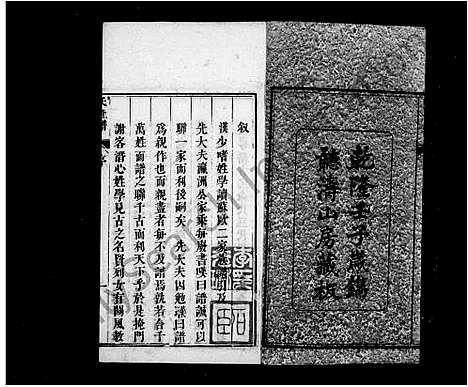 乾隆壬子歲鐫
聽濤山房藏板
叙
漢少嗜姓學讀蘇歐二家族譜引及
先大夫瀛洲公家乘每廢書嘆曰譜誠可以
聯一家而利後嗣矣 先大夫因勉漢曰譜
爲親作也而親盡者每不及譜焉孰若合千
萬姓而譜之聯千古而利天下於是掩門
謝客潛心姓學見古之名賢列女有關風教